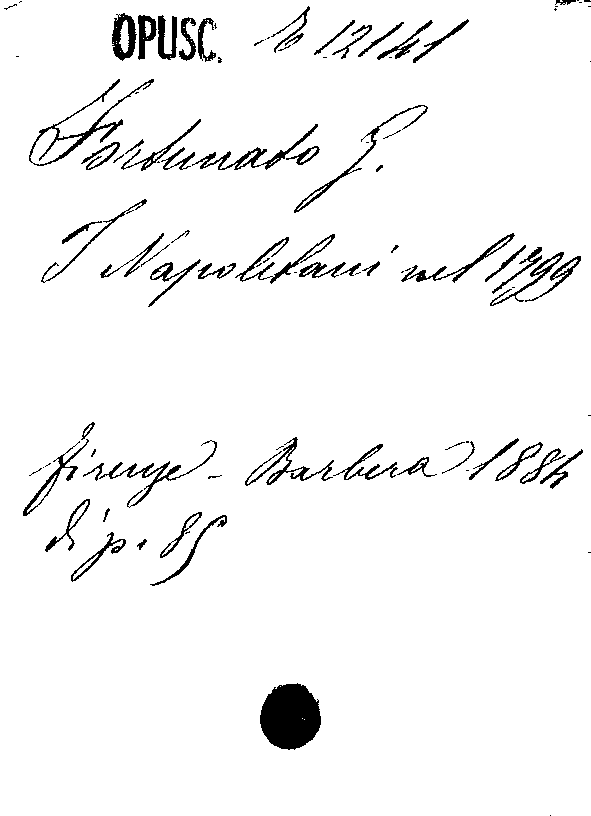 OPUSC. E 12141
Fortunato G.
I Napoletani nel 1799
Firenze - Barbera 1884
di p. 85